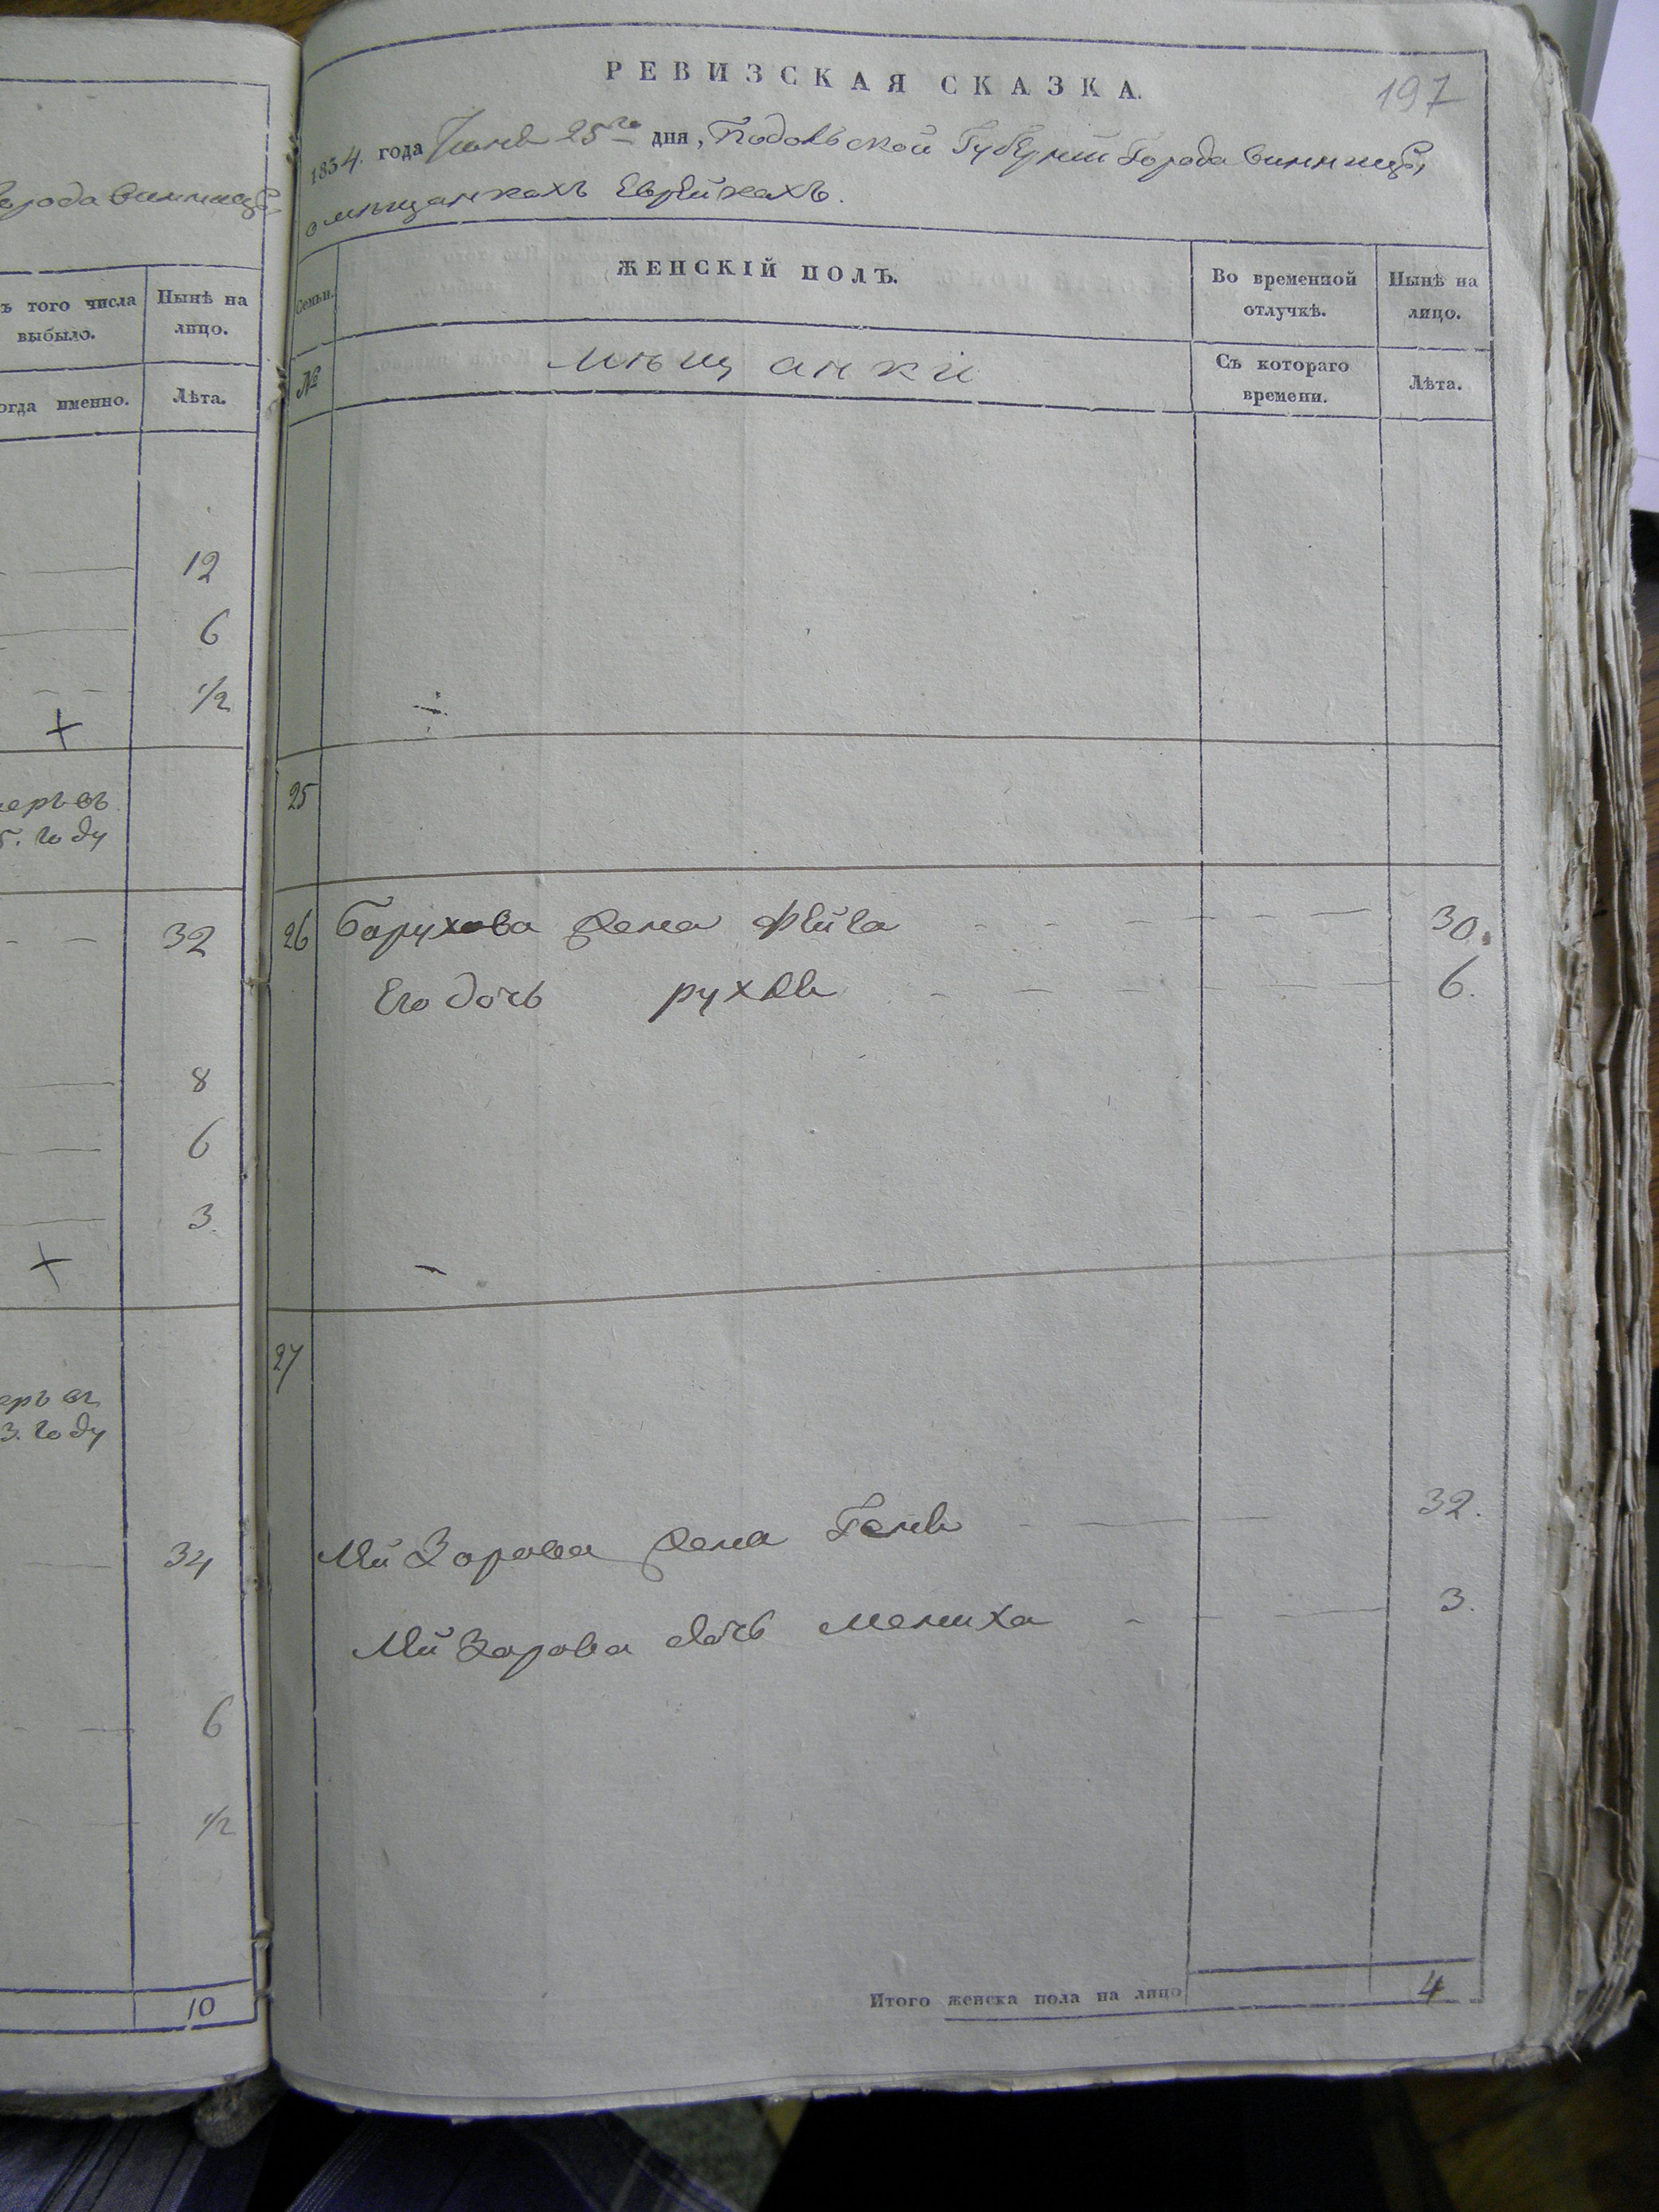 города Винницы
ъ того числа
выбыло.
Нынѣ на
лицо.
огда именно.
Лѣта.
12
6
1/2
+
еръ въ
5. году
32
8
6
3.
+
еръ въ
3. году
34
6
1/2
10
РЕВИЗСКАЯ СКАЗКА.
197
1834. года Іюня 25го дня, Подольской Губерніи Города Винницы
о мѣщанкахъ Еврейкахъ.
Семьи.
ЖЕНСКІЙ ПОЛЪ.
Во временной
отлучкѣ.
Нынѣ на
лицо.
№
мѣщанки
Съ котораго
времени.
Лѣта.
25
26 Барухова жена Фейга 30.
Его дочь рухля 6.
27
жена 32.
дочь Мениха 3.
Итого женска пола на лицо 4